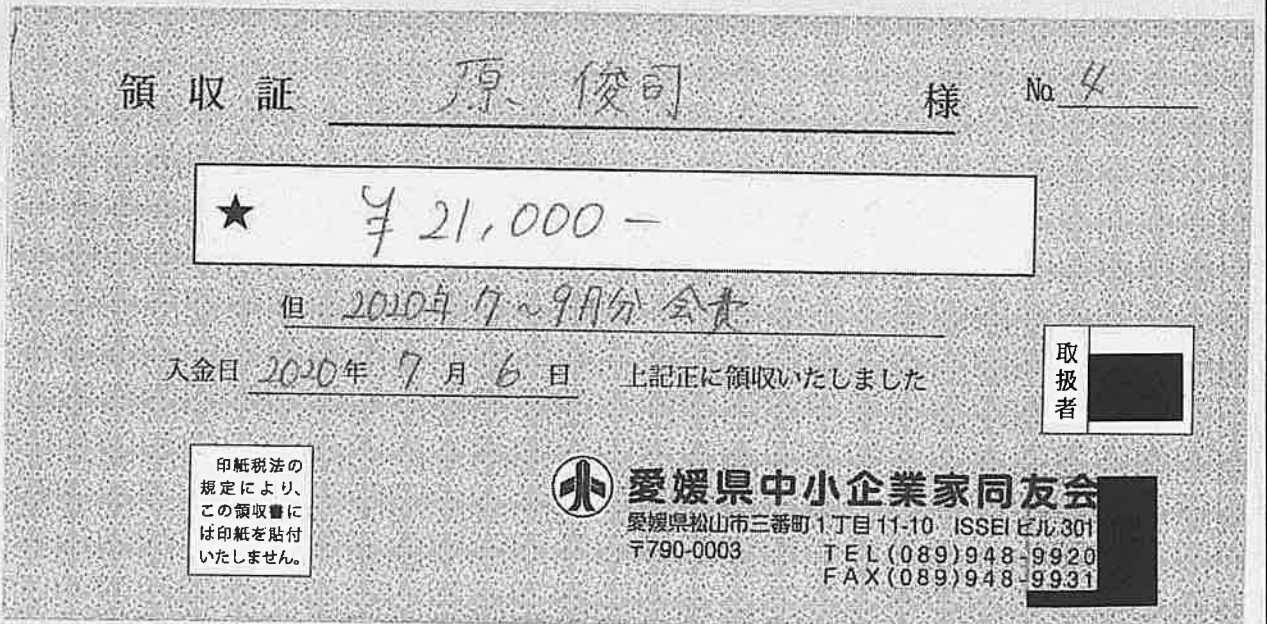 領収証 原 俊司 様 No. 4
★ ¥21,000-
但 2020年7~9月分 会費
入金日 2020年 7月 6日 上記正に領収いたしました
取扱者
印紙税法の
規定により、
この領収書に
は印紙を貼付
いたしません。
愛媛県中小企業家同友会
愛媛県松山市三番町1丁目11-10 ISSEIビル301
〒790-0003 TEL(089)948-9920
FAX(089)948-9931